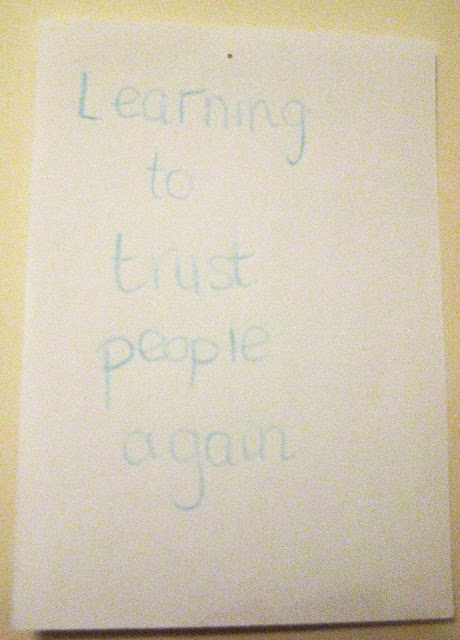 Learning
to
trust
people
again